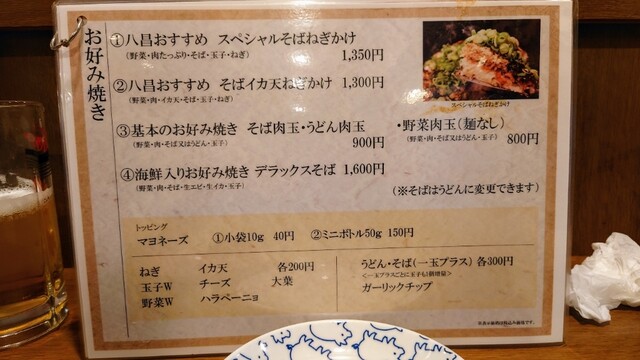 お好み焼き
①八昌おすすめ スペシャルそばねぎかけ
(野菜・肉たっぷり・そば・玉子・ねぎ) 1,350円
②八昌おすすめ そばイカ天ねぎかけ 1,300円
(野菜・肉・イカ天・そば・玉子・ねぎ)
③基本のお好み焼き そば肉玉・うどん肉玉
(野菜・肉・そば又はうどん・玉子) 900円
④海鮮入りお好み焼き デラックスそば 1,600円
(野菜・肉・そば・生エビ・生イカ・玉子)
スペシャルそばねぎかけ
・野菜肉玉(麺なし)
(野菜・肉・そば又はうどん・玉子) 800円
(※そばはうどんに変更できます)
トッピング
マヨネーズ ①小袋10g 40円 ②ミニボトル50g 150円
ねぎ イカ天 各200円
玉子W チーズ 大葉
野菜W ハラペーニョ
うどん・そば(一玉プラス) 各300円
<一玉プラスごとに玉子も1個増量>
ガーリックチップ